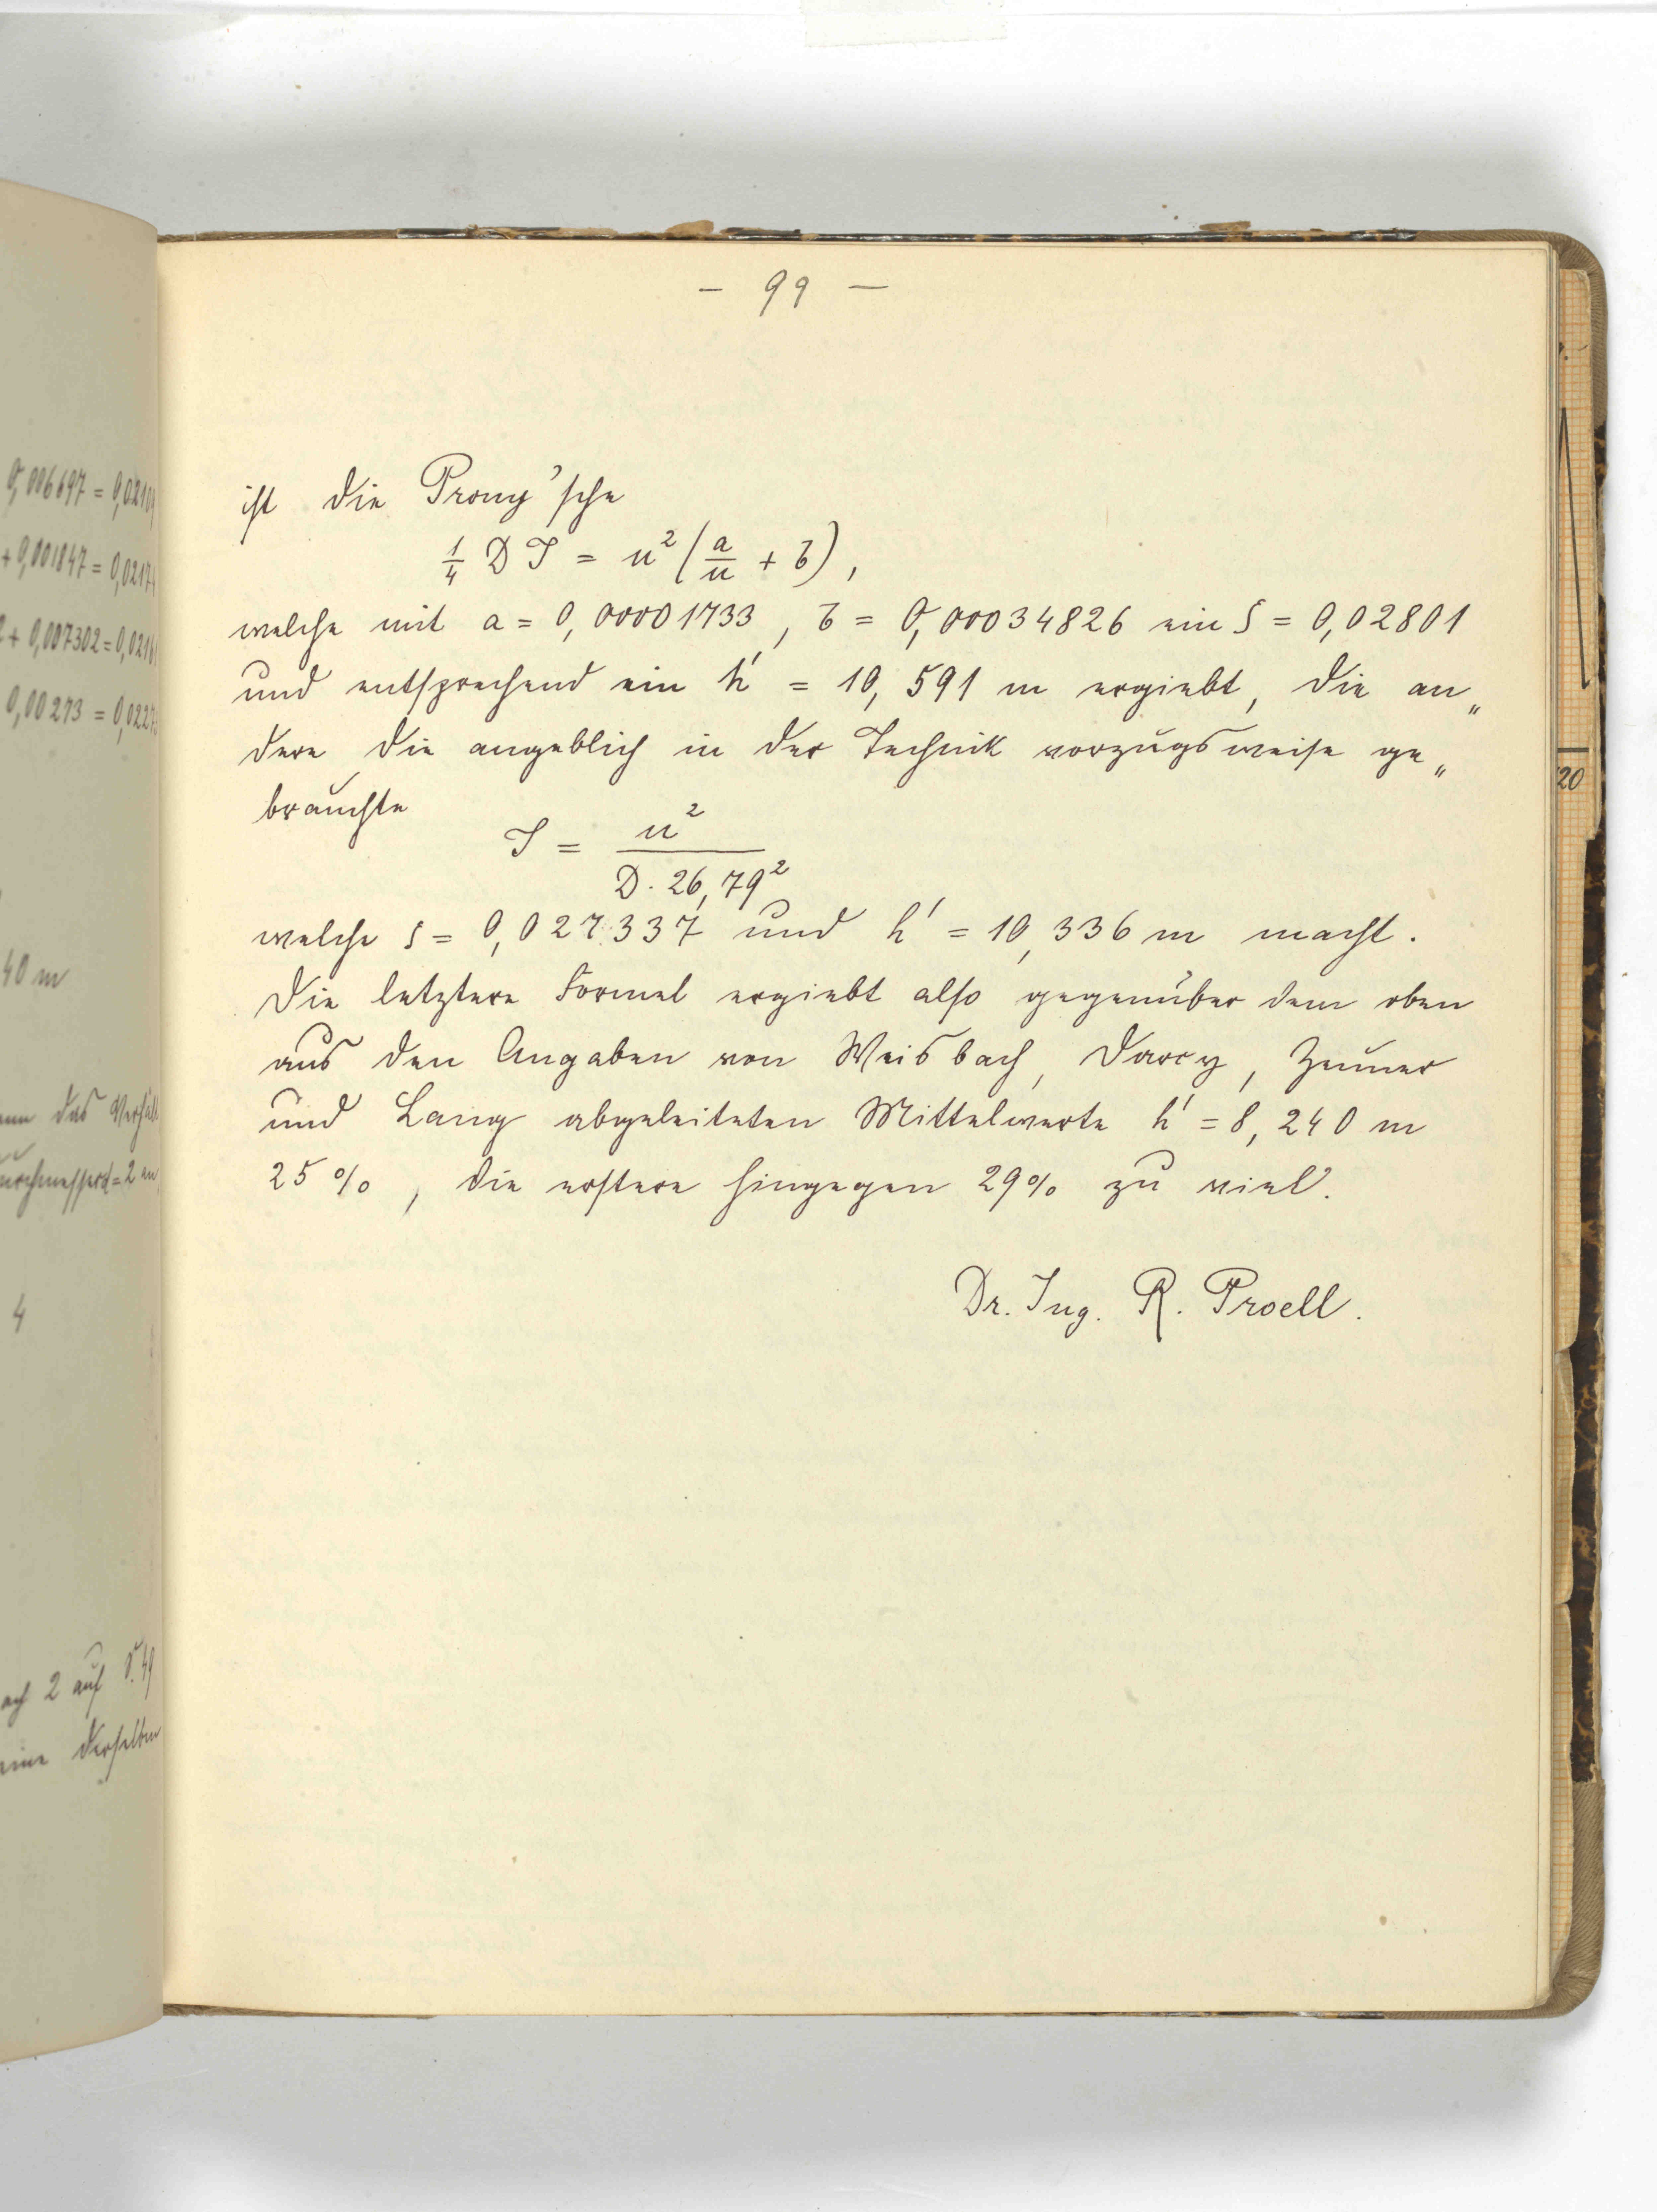 0,006697 = 0,0210
+ 0,001847 = 0,0217
+ 0,007302 = 0,0216
0,00273 = 0,0227
40 m
das Verhält
= 2 an
4
2 auf S. 49
eine derselben
20
- 99 -
ist die Prony'sche
1/4 D J = u² ( a/u + b ) ,
welche mit a = 0,00001733, b = 0,00034826 ein ς = 0,02801
und entsprechend ein h' = 10,591 m ergiebt, die an„
dere die angeblich in der Technik vorzugsweise ge„
brauchte
J = u² / D. 26,79²
welche ς = 0,027337 und h' = 10,336 m macht.
Die letztere Formel ergiebt also gegenüber dem oben
aus den Angaben von Weisbach, Darcy, Zeuner
und Lang abgeleiteten Mittelwerte h' = 8,240 m
25 %, die erstere hingegen 29% zu viel.
Dr. Ing. R. Proell.